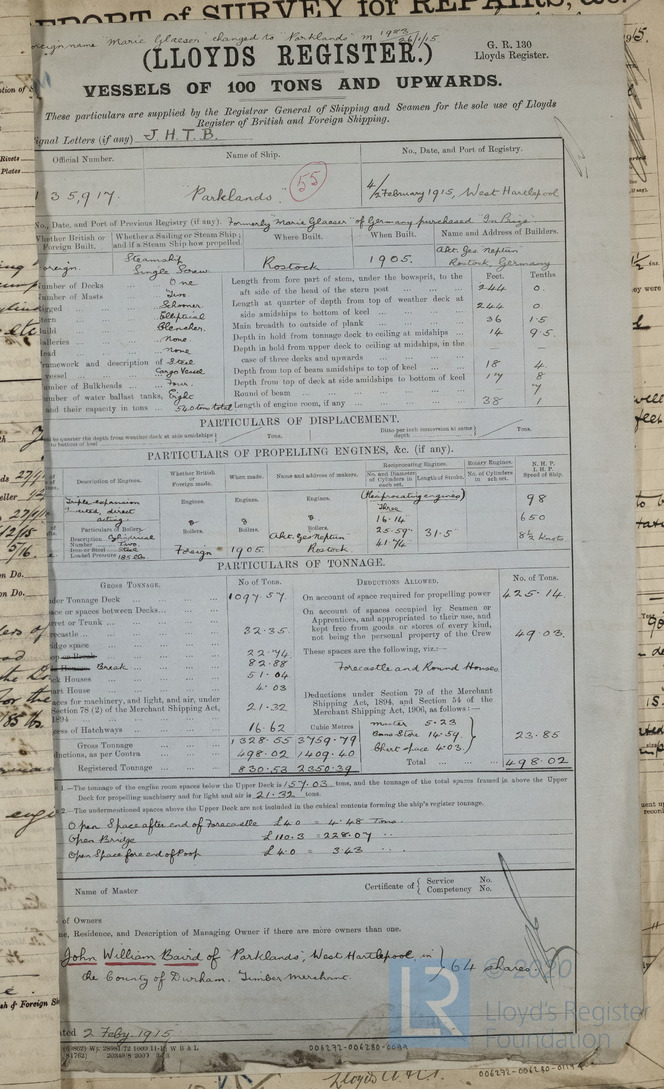 REPORT of SURVEY for REPAIRS, &c.
name "Marie Glaeser" changed to "Parklands" m 1983 26/1/15
(LLOYDS REGISTER.)
G. R. 130
Lloyds Register.
VESSELS OF 100 TONS AND UPWARDS.
These particulars are supplied by the Registrar General of Shipping and Seamen for the sole use of Lloyds
Register of British and Foreign Shipping.
Signal Letters (if any) J.H.T.B.
Official Number. Name of Ship. No., Date, and Port of Registry.
135,917. "Parklands." 55 4/2 February 1915, West Hartlepool
No., Date, and Port of Previous Registry (if any). Formerly "Marie Glaeser" of Germany purchased In Prize
Whether British or Foreign Built. Whether a Sailing or Steam Ship; and if a Steam Ship how propelled. Where Built. When Built. Name and Address of Builders.
Foreign. Steamship Single Screw Rostock 1905. Akt. Ges Neptun Rostock, Germany
Number of Decks One
Number of Masts Two
Rigged Schooner
Stern Elliptical
Build Clencher
Galleries none
Head none
Framework and description of vessel Steel Cargo Vessel
Number of Bulkheads Four.
Number of water ballast tanks, Eight
and their capacity in tons 540 tons total
Feet. Tenths
Length from fore part of stem, under the bowsprit, to the
aft side of the head of the stern post 244 0.
Length at quarter of depth from top of weather deck at
side amidships to bottom of keel 244 0
Main breadth to outside of plank 36 1.5
Depth in hold from tonnage deck to ceiling at midships 14 9.5.
Depth in hold from upper deck to ceiling at midships, in the
case of three decks and upwards — —
Depth from top of beam amidships to top of keel 18 4.
Depth from top of deck at side amidships to bottom of keel 17 8
Round of beam 7
Length of engine room, if any 38 1
PARTICULARS OF DISPLACEMENT.
to quarter the depth from weather deck at side amidships to bottom of keel Tons. Ditto per inch immersion at same depth Tons.
PARTICULARS OF PROPELLING ENGINES, &c. (if any).
Description of Engines. Whether British or Foreign made. When made. Name and address of makers. Reciprocating Engines. No. and Diameter of Cylinders in each set. Length of Stroke. Rotary Engines. No. of Cylinders in each set. N.H.P. I.H.P. Speed of Ship.
Triple expansion direct acting. Engines. Engines. Engines. (Reciprocating engines) Three 98
16.14 25.59. 41.74 31.5 650
Particulars of Boilers. Boilers. Boilers. Boilers. 8½ Knots
Description Cylindrical
Number Two
Iron or Steel Steel
Loaded Pressure 185 lbs
Foreign 1905. Akt. Ges Neptun Rostock
PARTICULARS OF TONNAGE.
GROSS TONNAGE. No of Tons. DEDUCTIONS ALLOWED. No. of Tons.
Under Tonnage Deck 1097.57.
Space or spaces between Decks
Turret or Trunk
Forecastle 32.35.
Bridge space
22.74
Break 82.88
Deck Houses 51.04
Chart House 4.03
Spaces for machinery, and light, and air, under
Section 78 (2) of the Merchant Shipping Act,
1894 21.32
Excess of Hatchways 16.62
Cubic Metres
Gross Tonnage 1328.55 3759.79
Deductions, as per Contra 498.02 1409.40
Registered Tonnage 830.53 2350.39
On account of space required for propelling power 425.14.
On account of spaces occupied by Seamen or
Apprentices, and appropriated to their use, and
kept free from goods or stores of every kind,
not being the personal property of the Crew 49.03.
These spaces are the following, viz:—
Forecastle and Round Houses
Deductions under Section 79 of the Merchant
Shipping Act, 1894, and Section 54 of the
Merchant Shipping Act, 1906, as follows:—
Master 5.23
Bosns Store 14.59.
Chart space 4.03.
23.85
Total 498.02
1.—The tonnage of the engine room spaces below the Upper Deck is 157.03 tons, and the tonnage of the total spaces framed in above the Upper
Deck for propelling machinery and for light and air is 21.32 tons.
2.—The undermentioned spaces above the Upper Deck are not included in the cubical contents forming the ship's register tonnage.
Open Space after end of Forecastle £4.0 = 4.48 Tons.
Open Bridge £110.3 = 228.07
Open Space fore end of Poop £4.0 = 3.43
Name of Master Certificate of { Service No. Competency No.
of Owners
Name, Residence, and Description of Managing Owner if there are more owners than one.
John William Baird of "Parklands", West Hartlepool, in
the County of Durham. Timber Merchant. } 64 shares.
Dated 2 Feby. 1915
006272-006280-0099
006272-006280-0119
LR © 2020
Lloyd's Register
Foundation